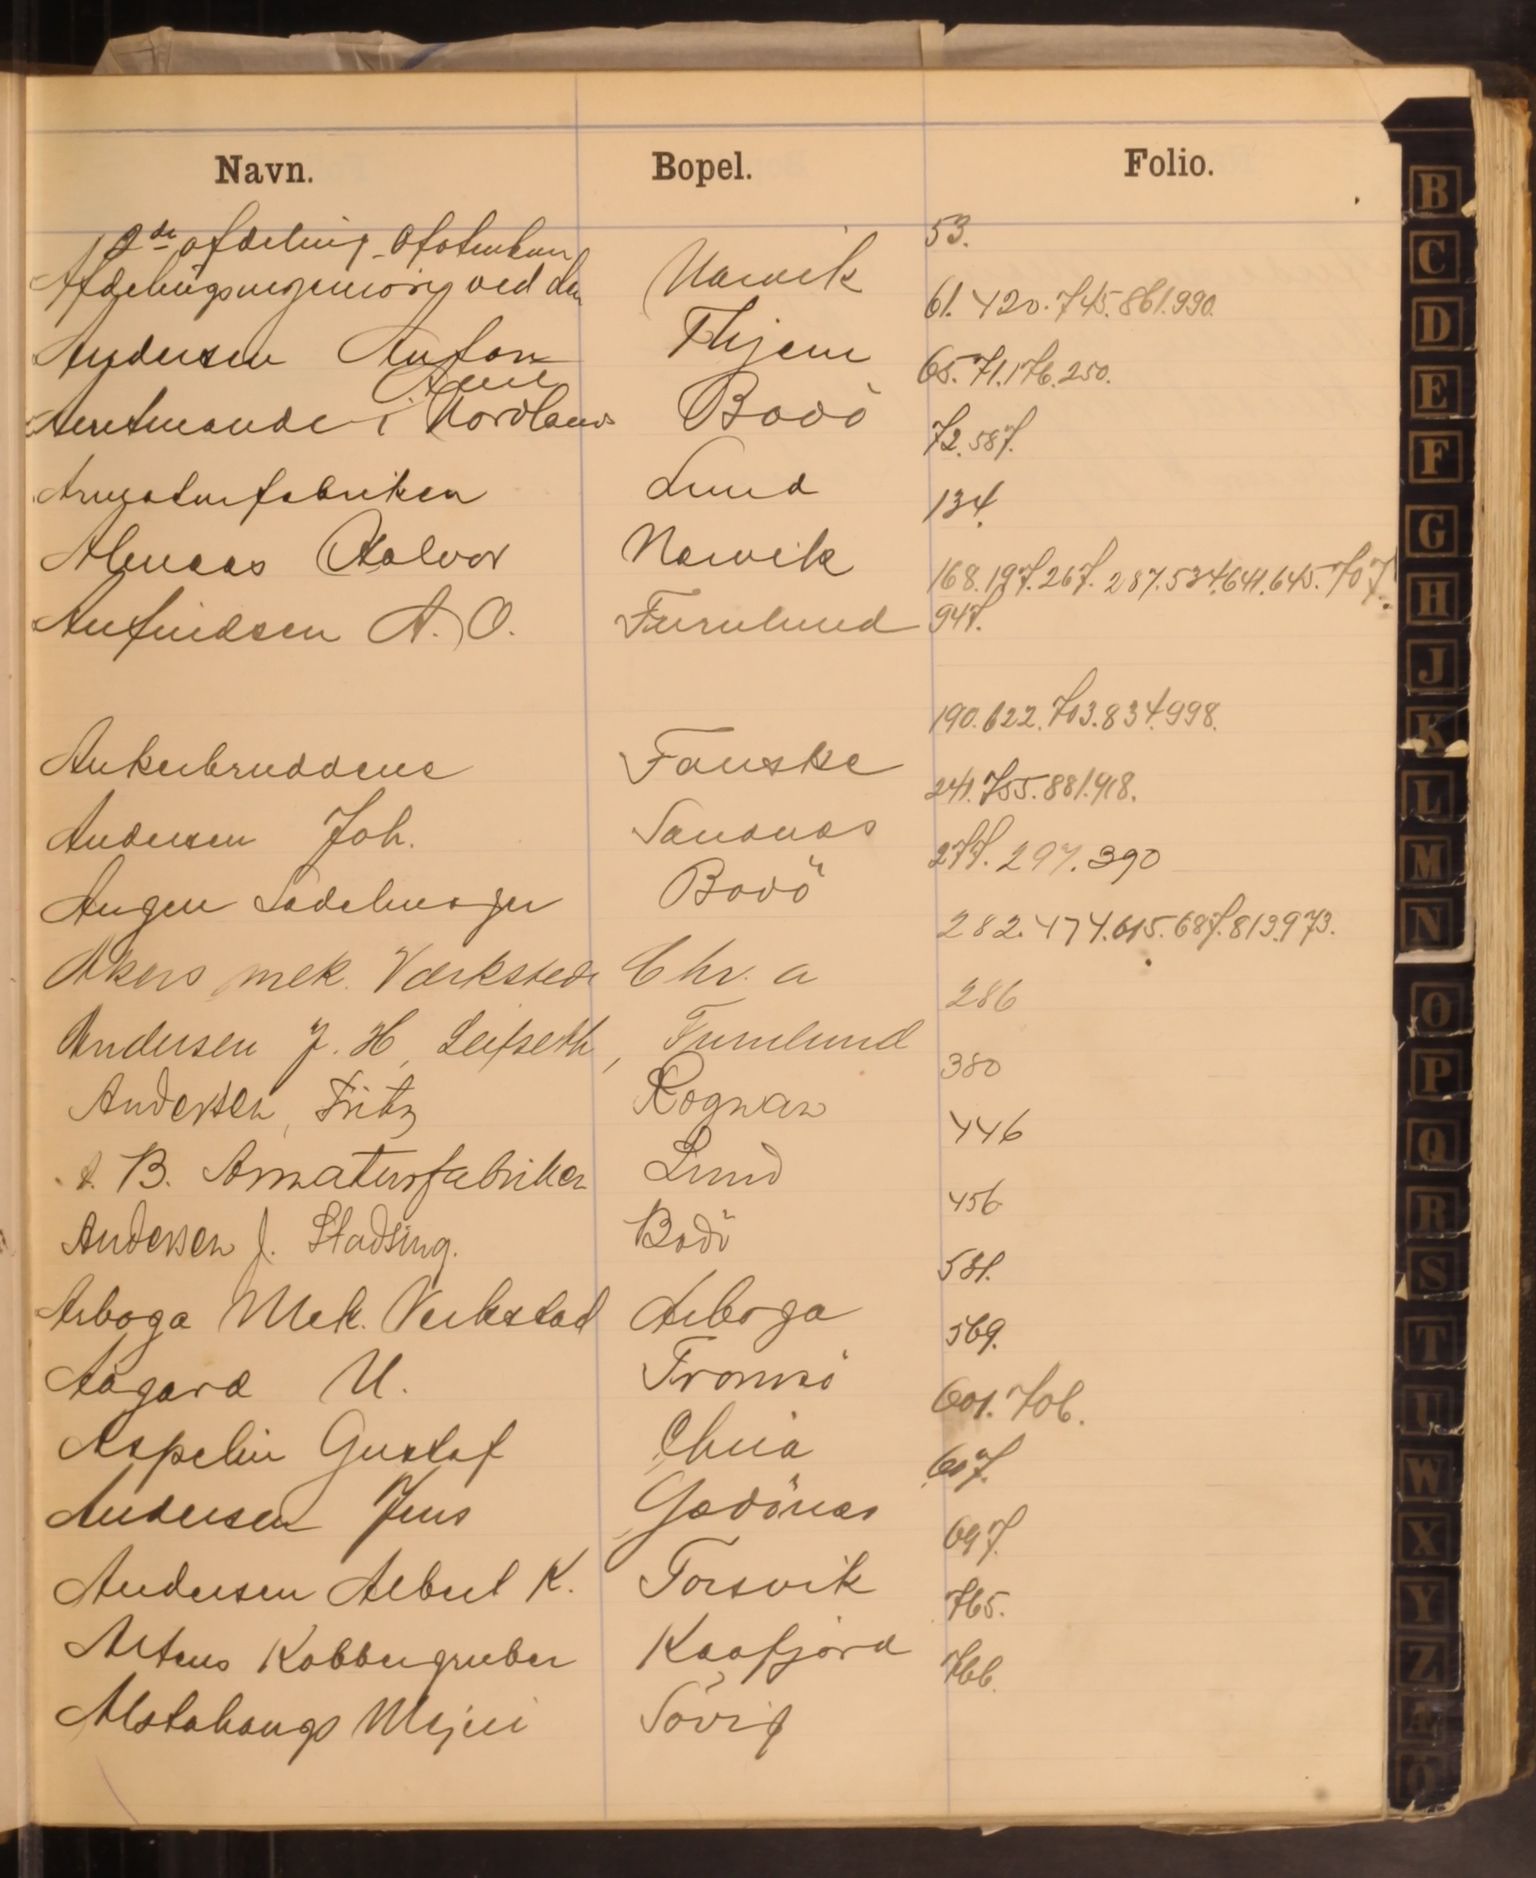 Navn. Bopel. Folio.
2de afdeling Ofotenban 53.
Afdelingsingeniöry ved den Narvik
61. 420. 745. 861. 990.
Andersen Anton Thjem
65. 71. 176. 250.
Amt
Amtmande i Nordland Bodö
72. 587.
Armaturfabriken Lund
134.
Almaas Halvor Narvik
168. 197. 267. 287. 534. 641. 645. 707.
Anfindsen A. O. Furulund 947.
190. 622. 703. 834. 998.
Ankerbruddene Fauske
241. 755. 881. 918.
Andersen Joh. Sandnes
277. 297. 390
Angen Sadelmager Bodö
282. 474. 615. 687. 813. 973.
Akers mek. Værksted Chr. a
286
Andersen J. H, Leifseth, Furulund
380
Andersen, Fritz Rognan
446
A. B. Armaturfabriken Lund
456
Andersen J. Stadsing. Bodö
581.
Arboga Mek. Verkstad Arboga
569.
Aagard U. Tromsö
601. 706.
Aspelin Gustaf Chria
607.
Andersen Jens Godönes
697.
Andersen Albert K. Torsvik
765.
Altens Kobbergruber Kaafjord
766.
Alstahaugs Mejeri Sövig
B
C
D
E
F
G
H
J
K
L
M
N
O
P
Q
R
S
T
U
W
X
Y
Z
Æ
Ö